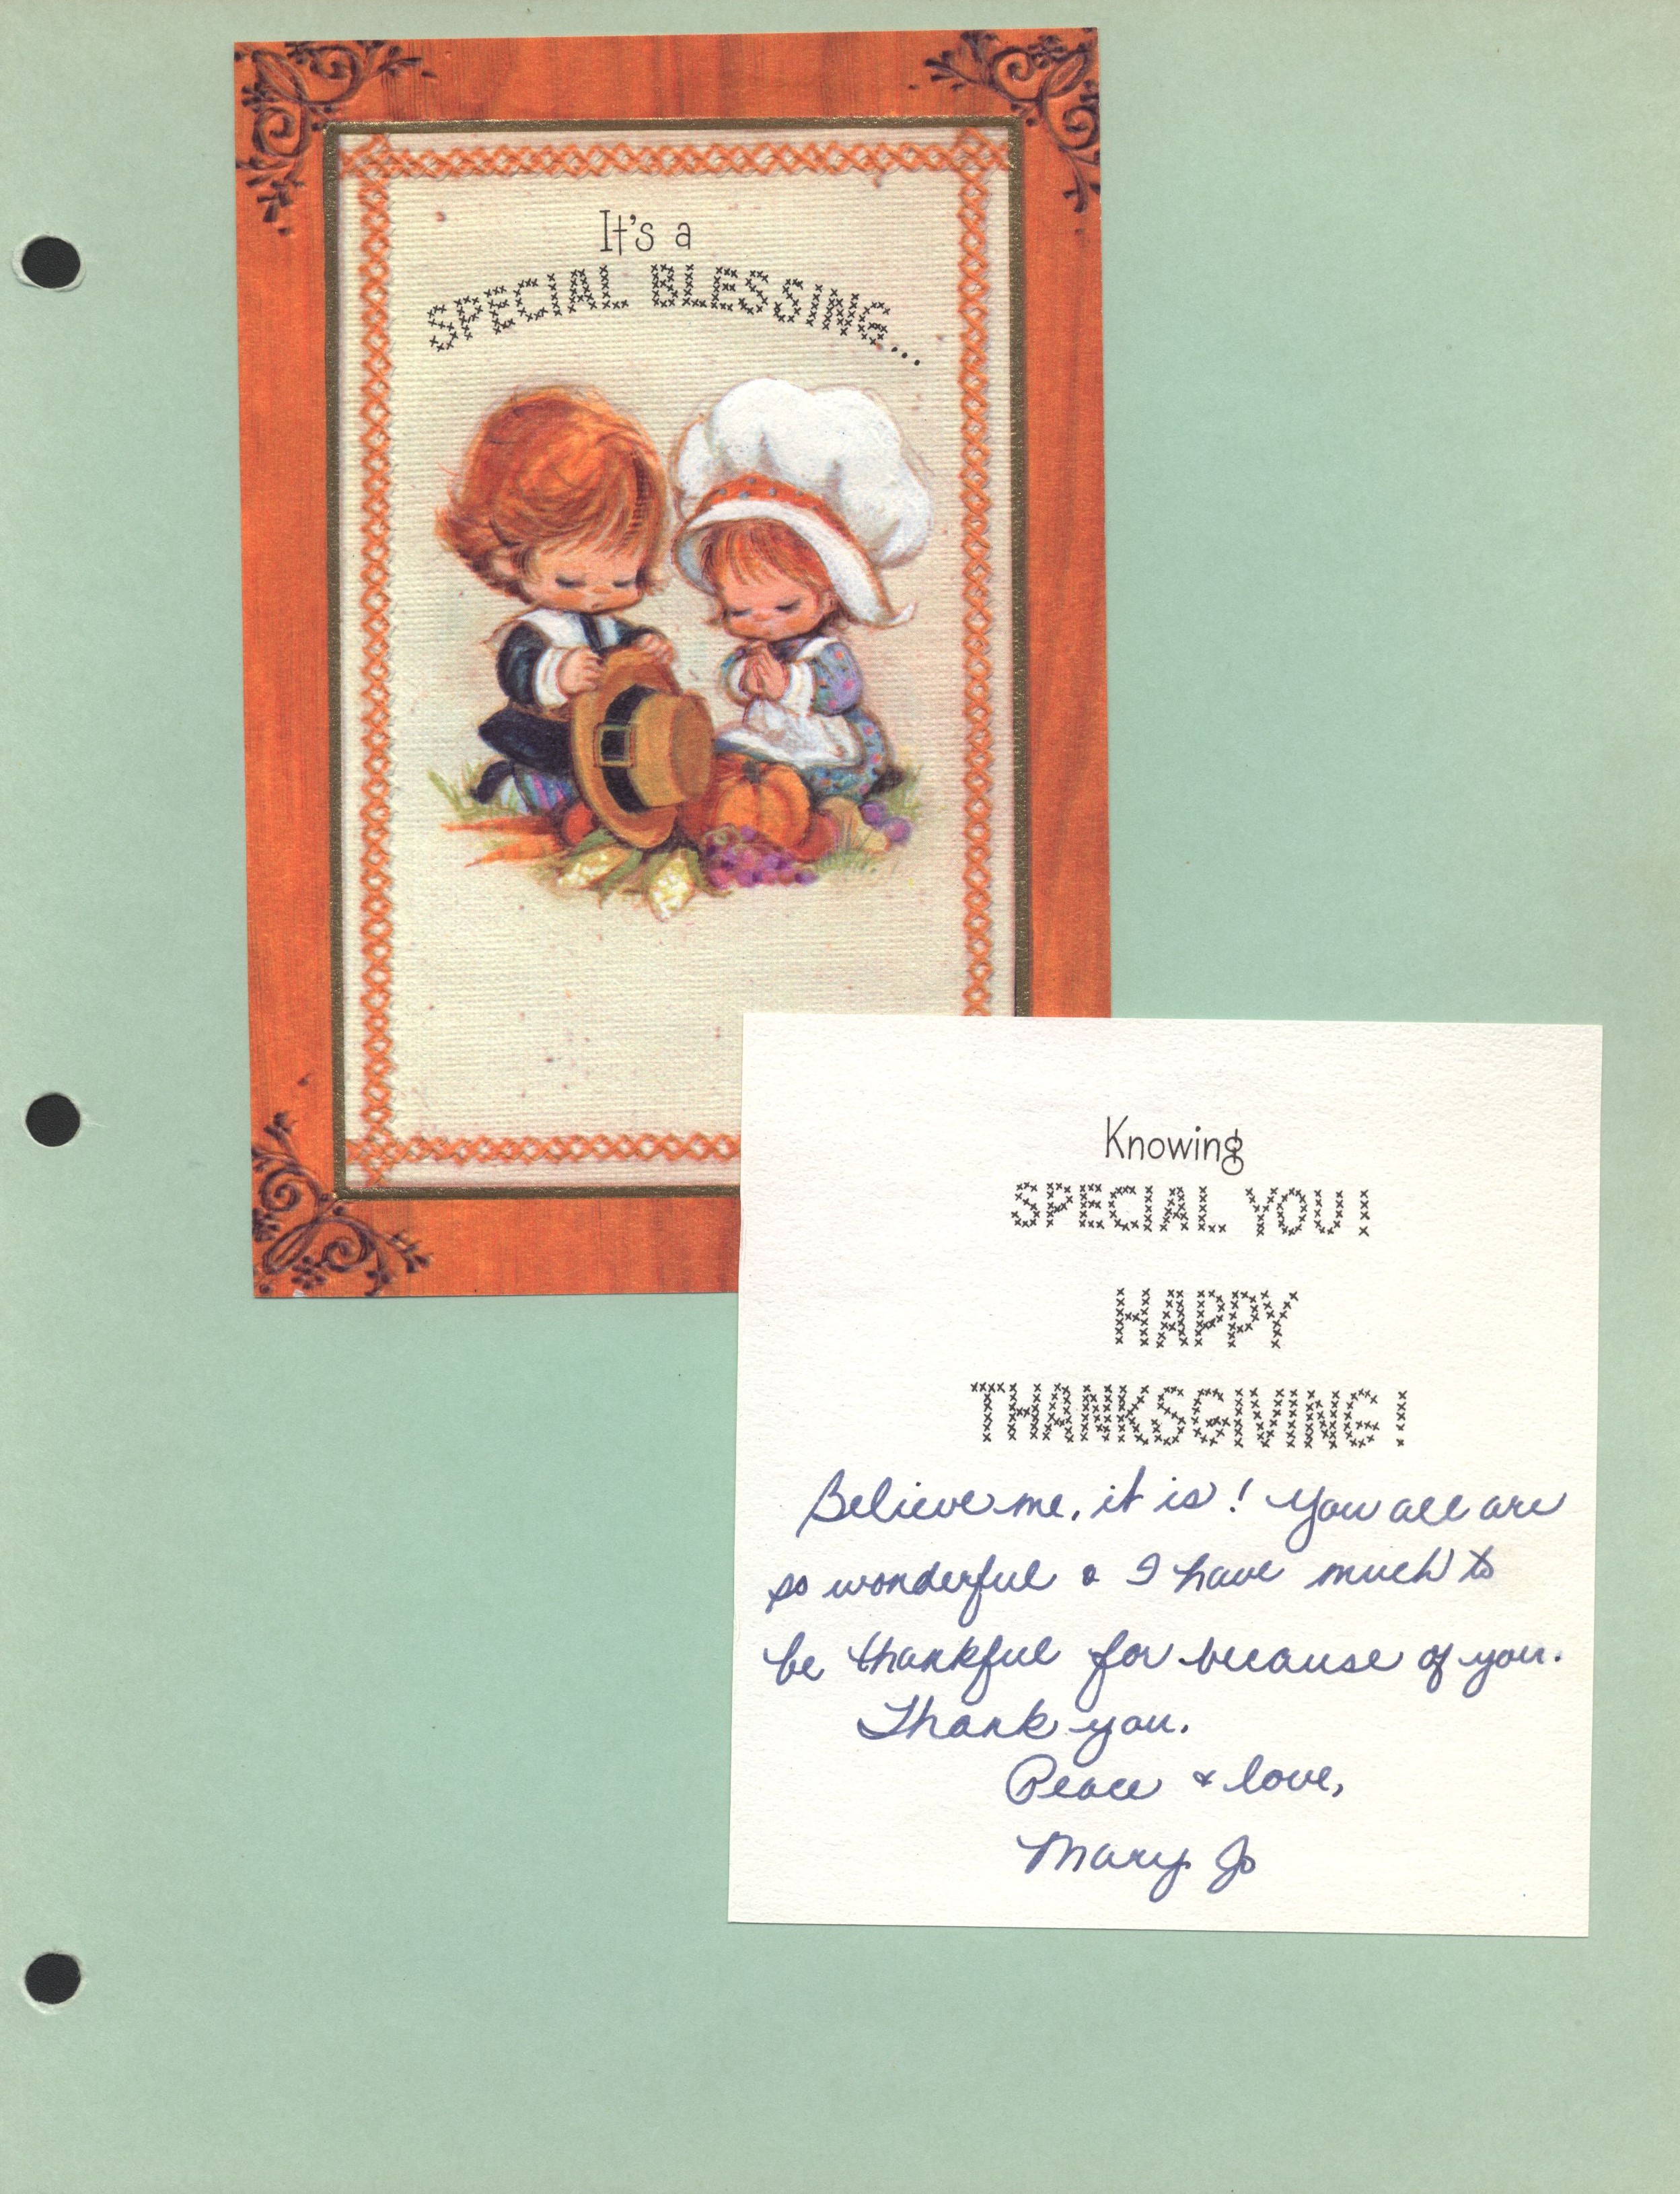 It's a
SPECIAL BLESSING...
Knowing
SPECIAL YOU!
HAPPY
THANKSGIVING!
Believe me, it is! You all are
so wonderful & I have much to
be thankful for because of you.
Thank you.
Peace & love,
Mary Jo